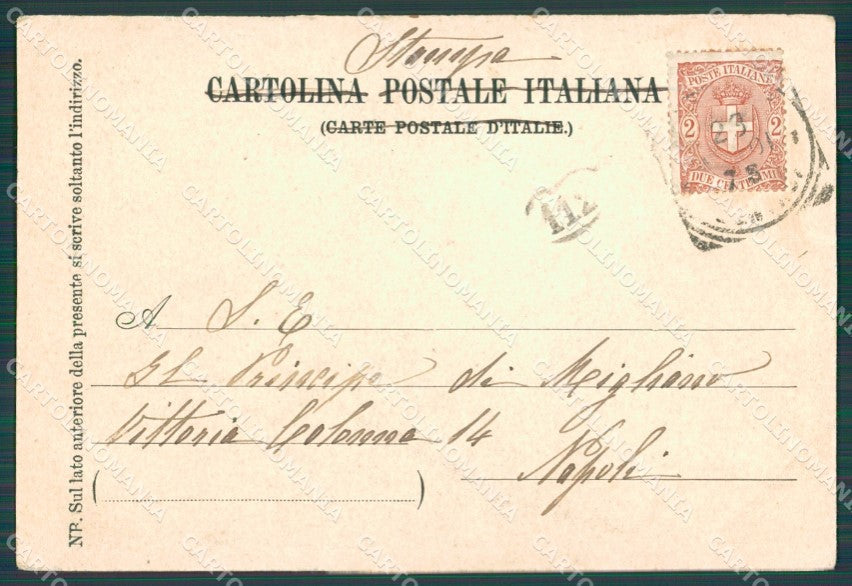 Stampa
CARTOLINA POSTALE ITALIANA
(CARTE POSTALE D'ITALIE.)
POSTE ITALIANE
2 2
DUE CENTESIMI
23
7 S
112
NB. Sul lato anteriore della presente si scrive soltanto l'indirizzo.
A S. E.
Il Principe di Migliano
Vittoria Colonna 14
Napoli
CARTOLINOMANIA